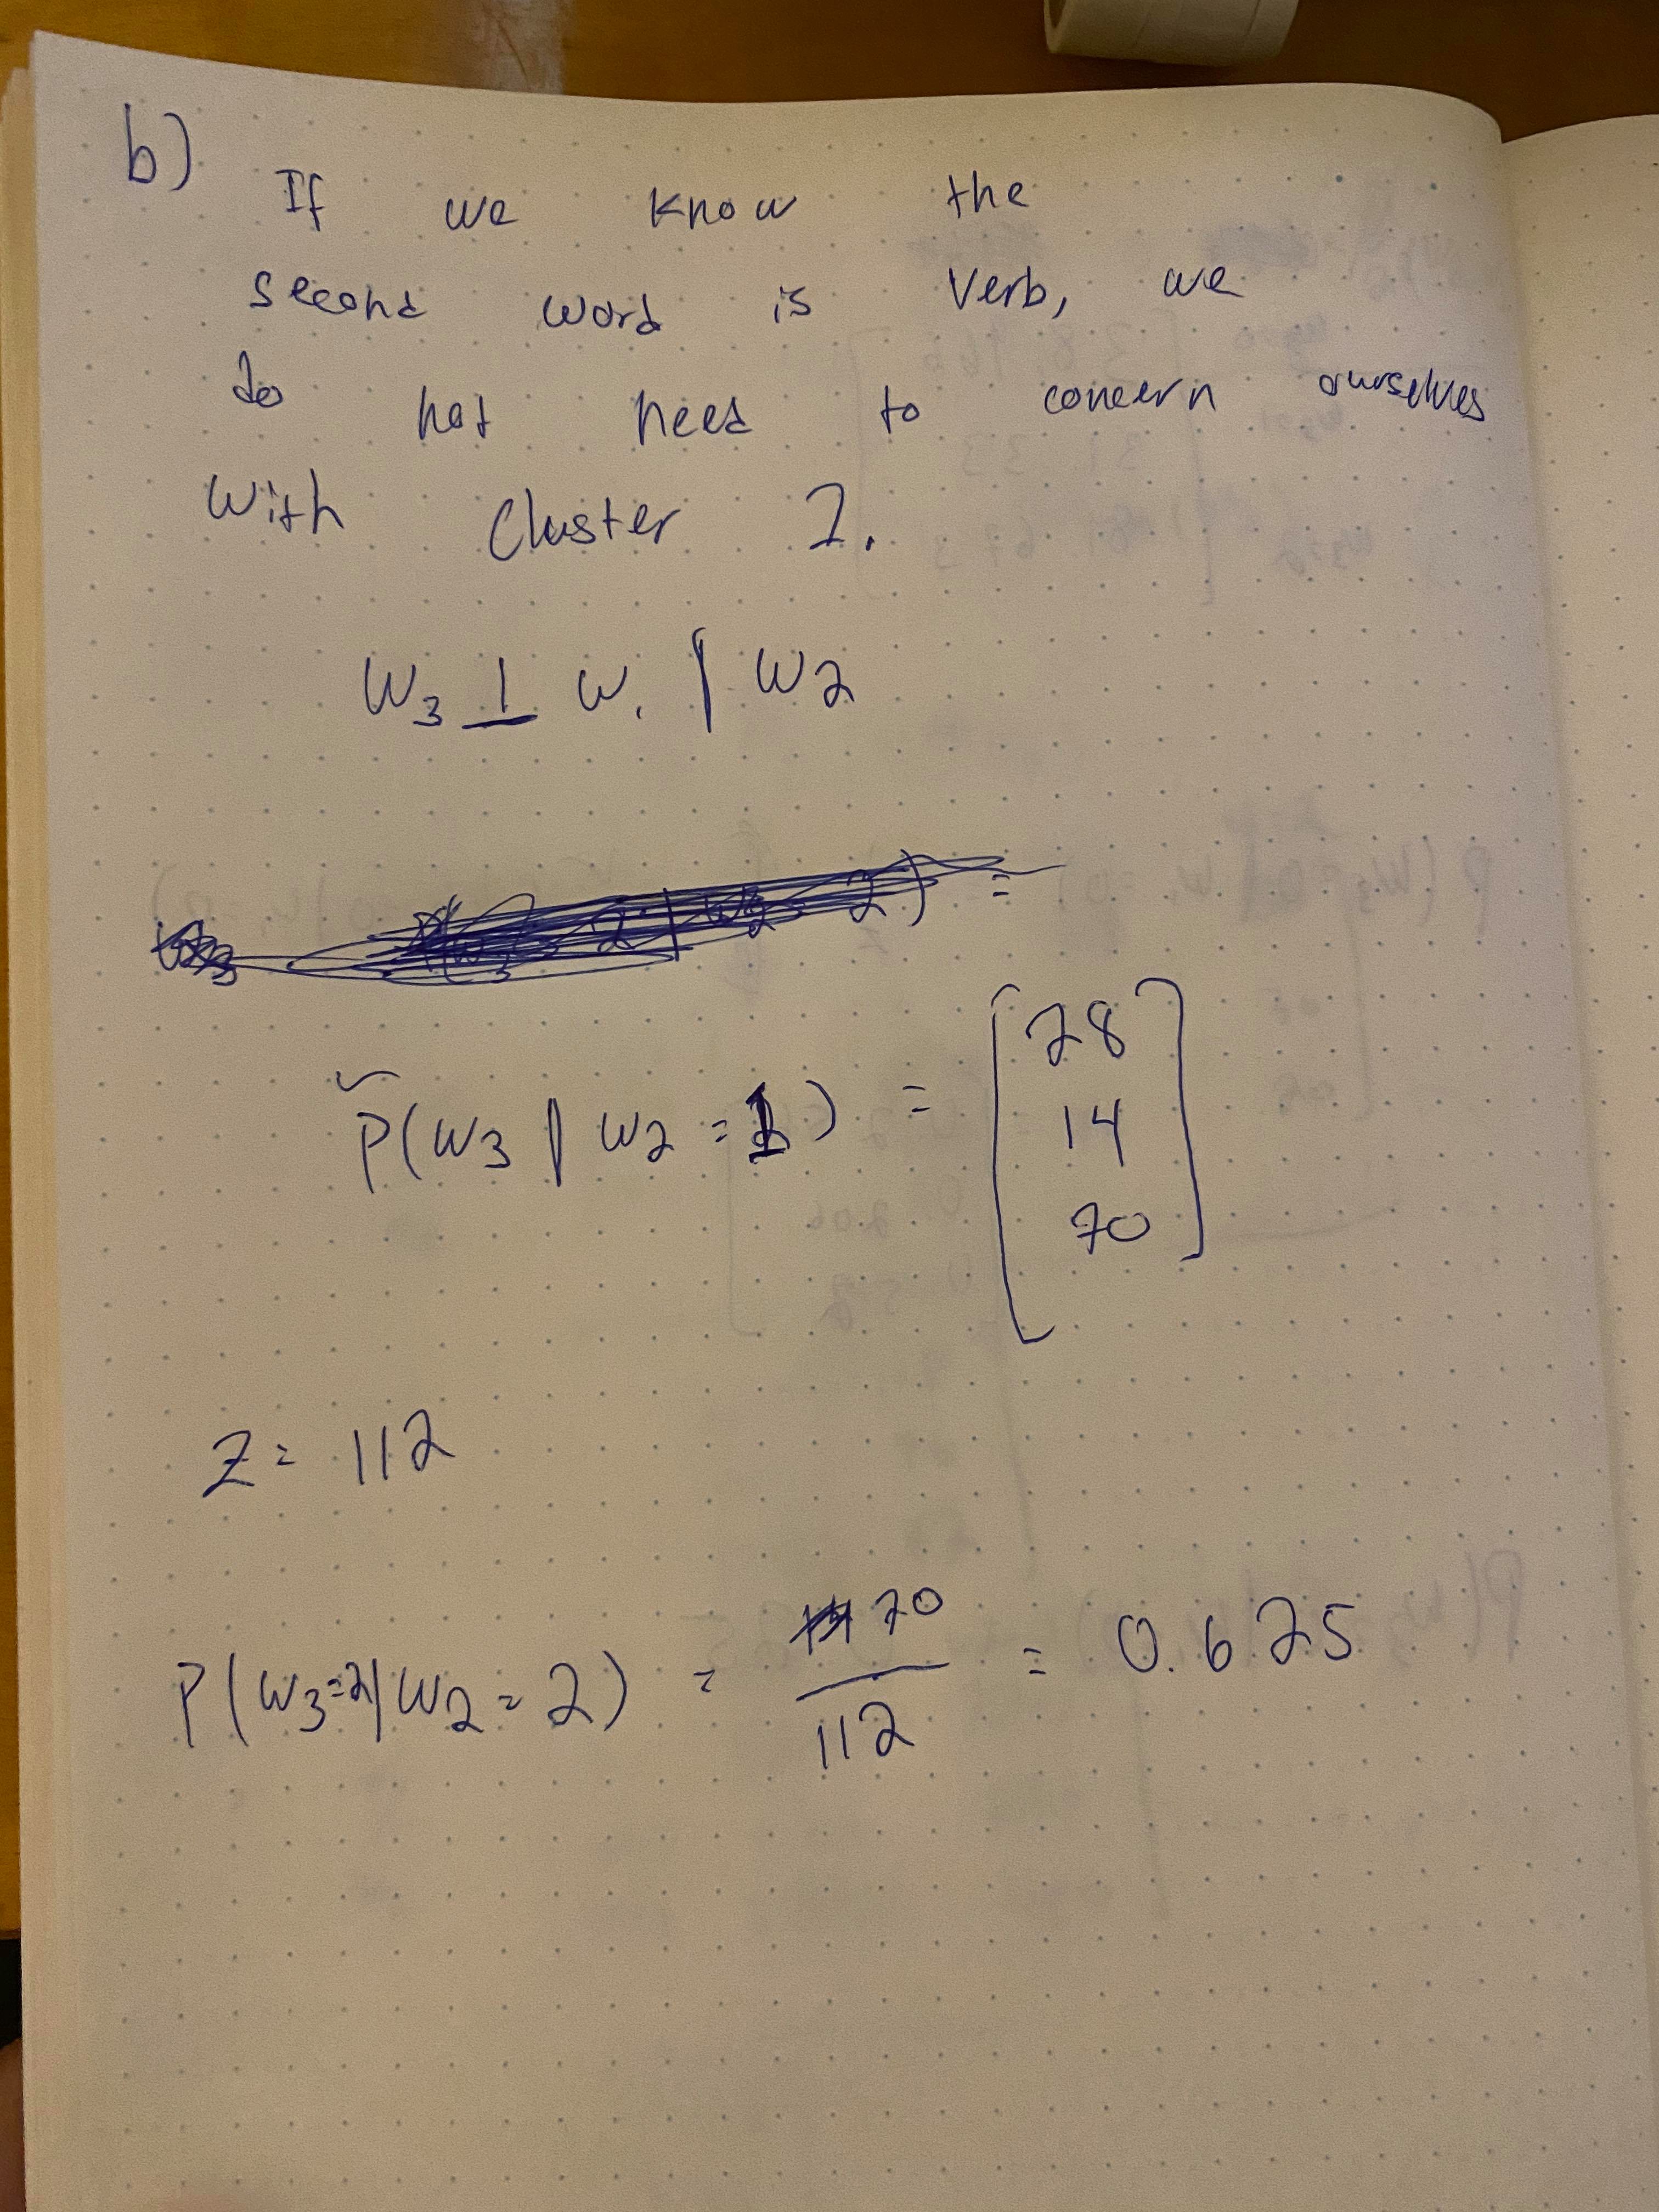 b)
If we know the
second word is Verb, we
do not need to concern ourselves
with Cluster 1.
W3 ⊥ W1 | W2
P̃(W3 | W2 = 1) = [28
14
70]
Z = 112
P(W3=2|W2=2) = 70/112 = 0.625